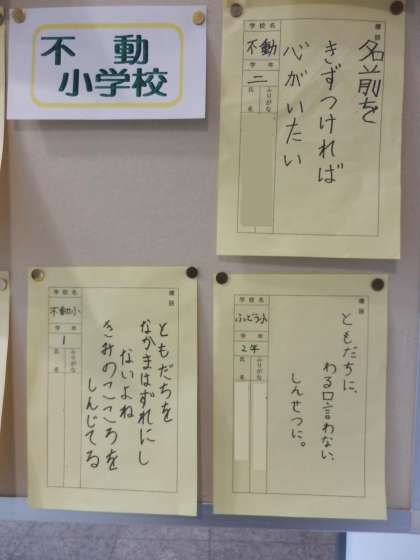 不動
小学校
標語
名前を
きずつければ
心がいたい
学校名
不動
学年
二
ふりがな
氏名
標語
ともだちを
なかまはずれにし
ないよね
きみのこころを
しんじてる
学校名
不動小
学年
1
ふりがな
氏名
標語
ともだちに、
わる口言わない、
しんせつに。
学校名
ふどう小
学年
2年
ふりがな
氏名